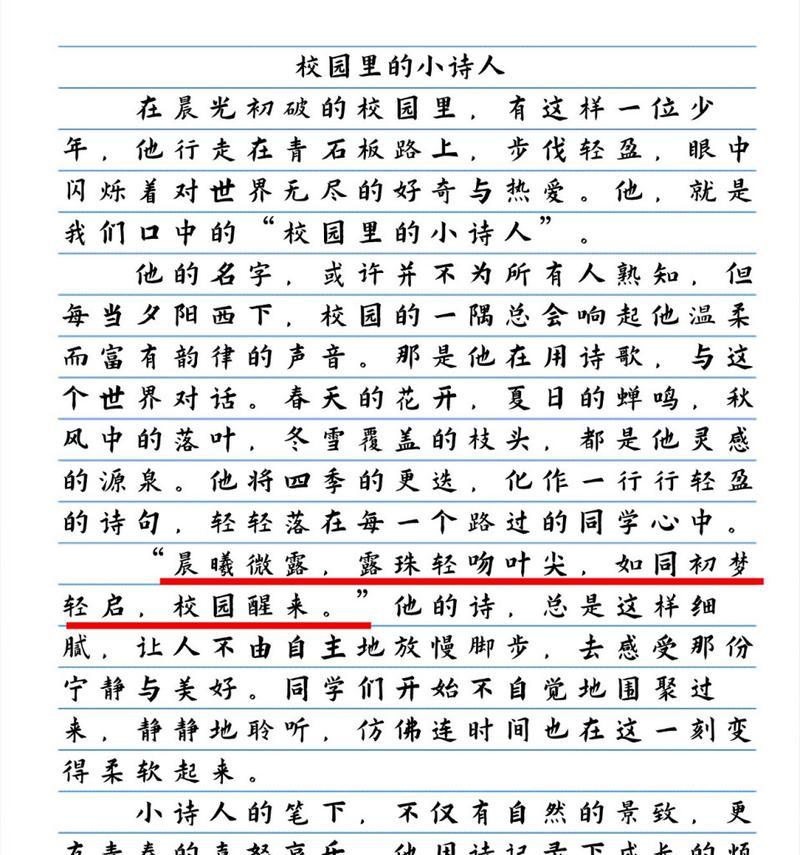 校园里的小诗人
在晨光初破的校园里，有这样一位少
年，他行走在青石板路上，步伐轻盈，眼中
闪烁着对世界无尽的好奇与热爱。他，就是
我们口中的“校园里的小诗人”。
他的名字，或许并不为所有人熟知，但
每当夕阳西下，校园的一隅总会响起他温柔
而富有韵律的声音。那是他在用诗歌，与这
个世界对话。春天的花开，夏日的蝉鸣，秋
风中的落叶，冬雪覆盖的枝头，都是他灵感
的源泉。他将四季的更迭，化作一行行轻盈
的诗句，轻轻落在每一个路过的同学心中。
“晨曦微露，露珠轻吻叶尖，如同初梦
轻启，校园醒来。”他的诗，总是这样细
腻，让人不由自主地放慢脚步，去感受那份
宁静与美好。同学们开始不自觉地围聚过
来，静静地聆听，仿佛连时间也在这一刻变
得柔软起来。
小诗人的笔下，不仅有自然的景致，更
有青春的喜怒哀乐。他用诗记录下成长的烦